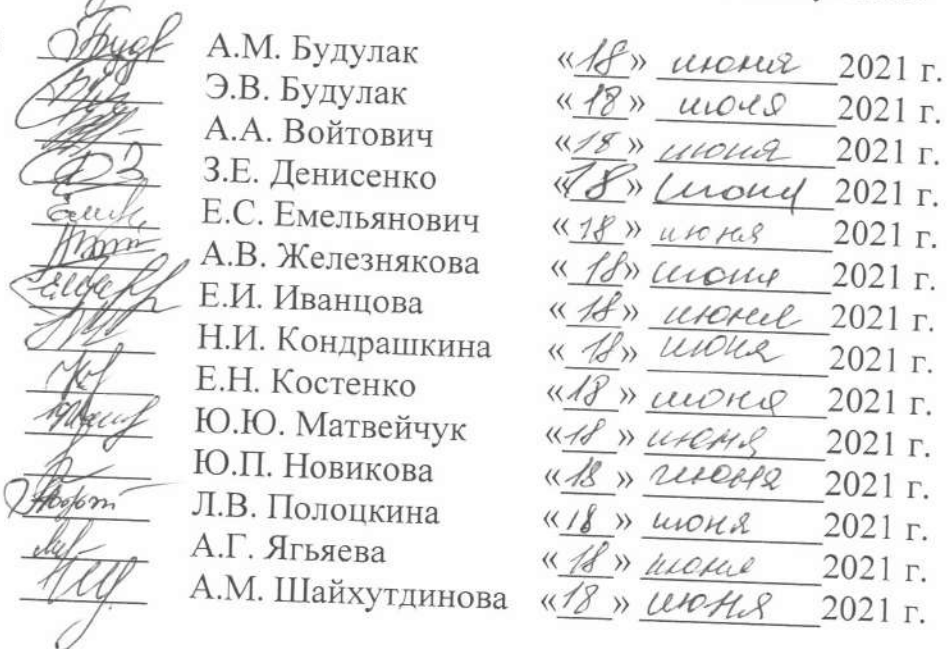 А.М. Будулак «18» июня 2021 г.
Э.В. Будулак «18» июля 2021 г.
А.А. Войтович «18» июня 2021 г.
З.Е. Денисенко «18» июня 2021 г.
Е.С. Емельянович «18» июня 2021 г.
А.В. Железнякова «18» июня 2021 г.
Е.И. Иванцова «18» июня 2021 г.
Н.И. Кондрашкина «18» июня 2021 г.
Е.Н. Костенко «18» июня 2021 г.
Ю.Ю. Матвейчук «18» июня 2021 г.
Ю.П. Новикова «18» июня 2021 г.
Л.В. Полоцкина «18» июня 2021 г.
А.Г. Ягьяева «18» июня 2021 г.
А.М. Шайхутдинова «18» июня 2021 г.